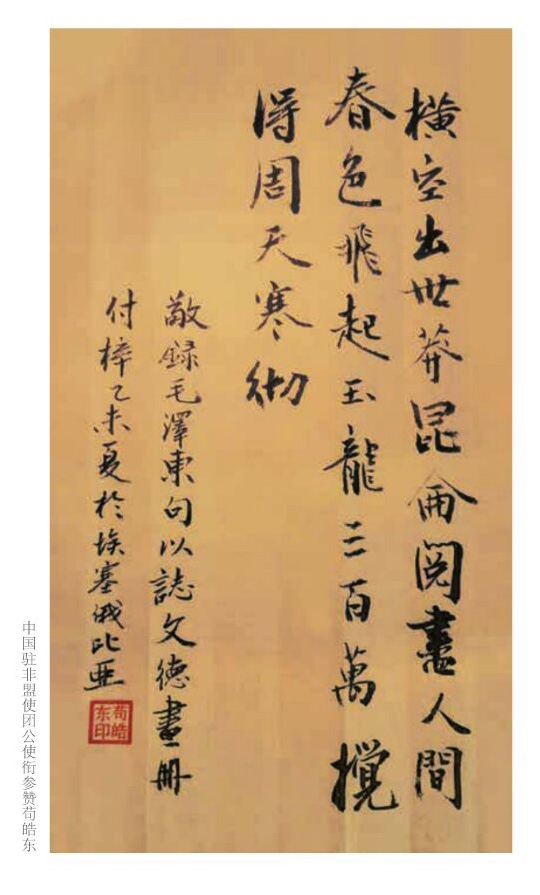 橫空出世莽昆侖閱盡人間
春色飛起玉龍三百萬攪
得周天寒彻
敬録毛澤東句以誌文德畫册
付梓乙未夏於埃塞俄比亚
苟皓
东印
中国驻非盟使团公使衔参赞苟皓东